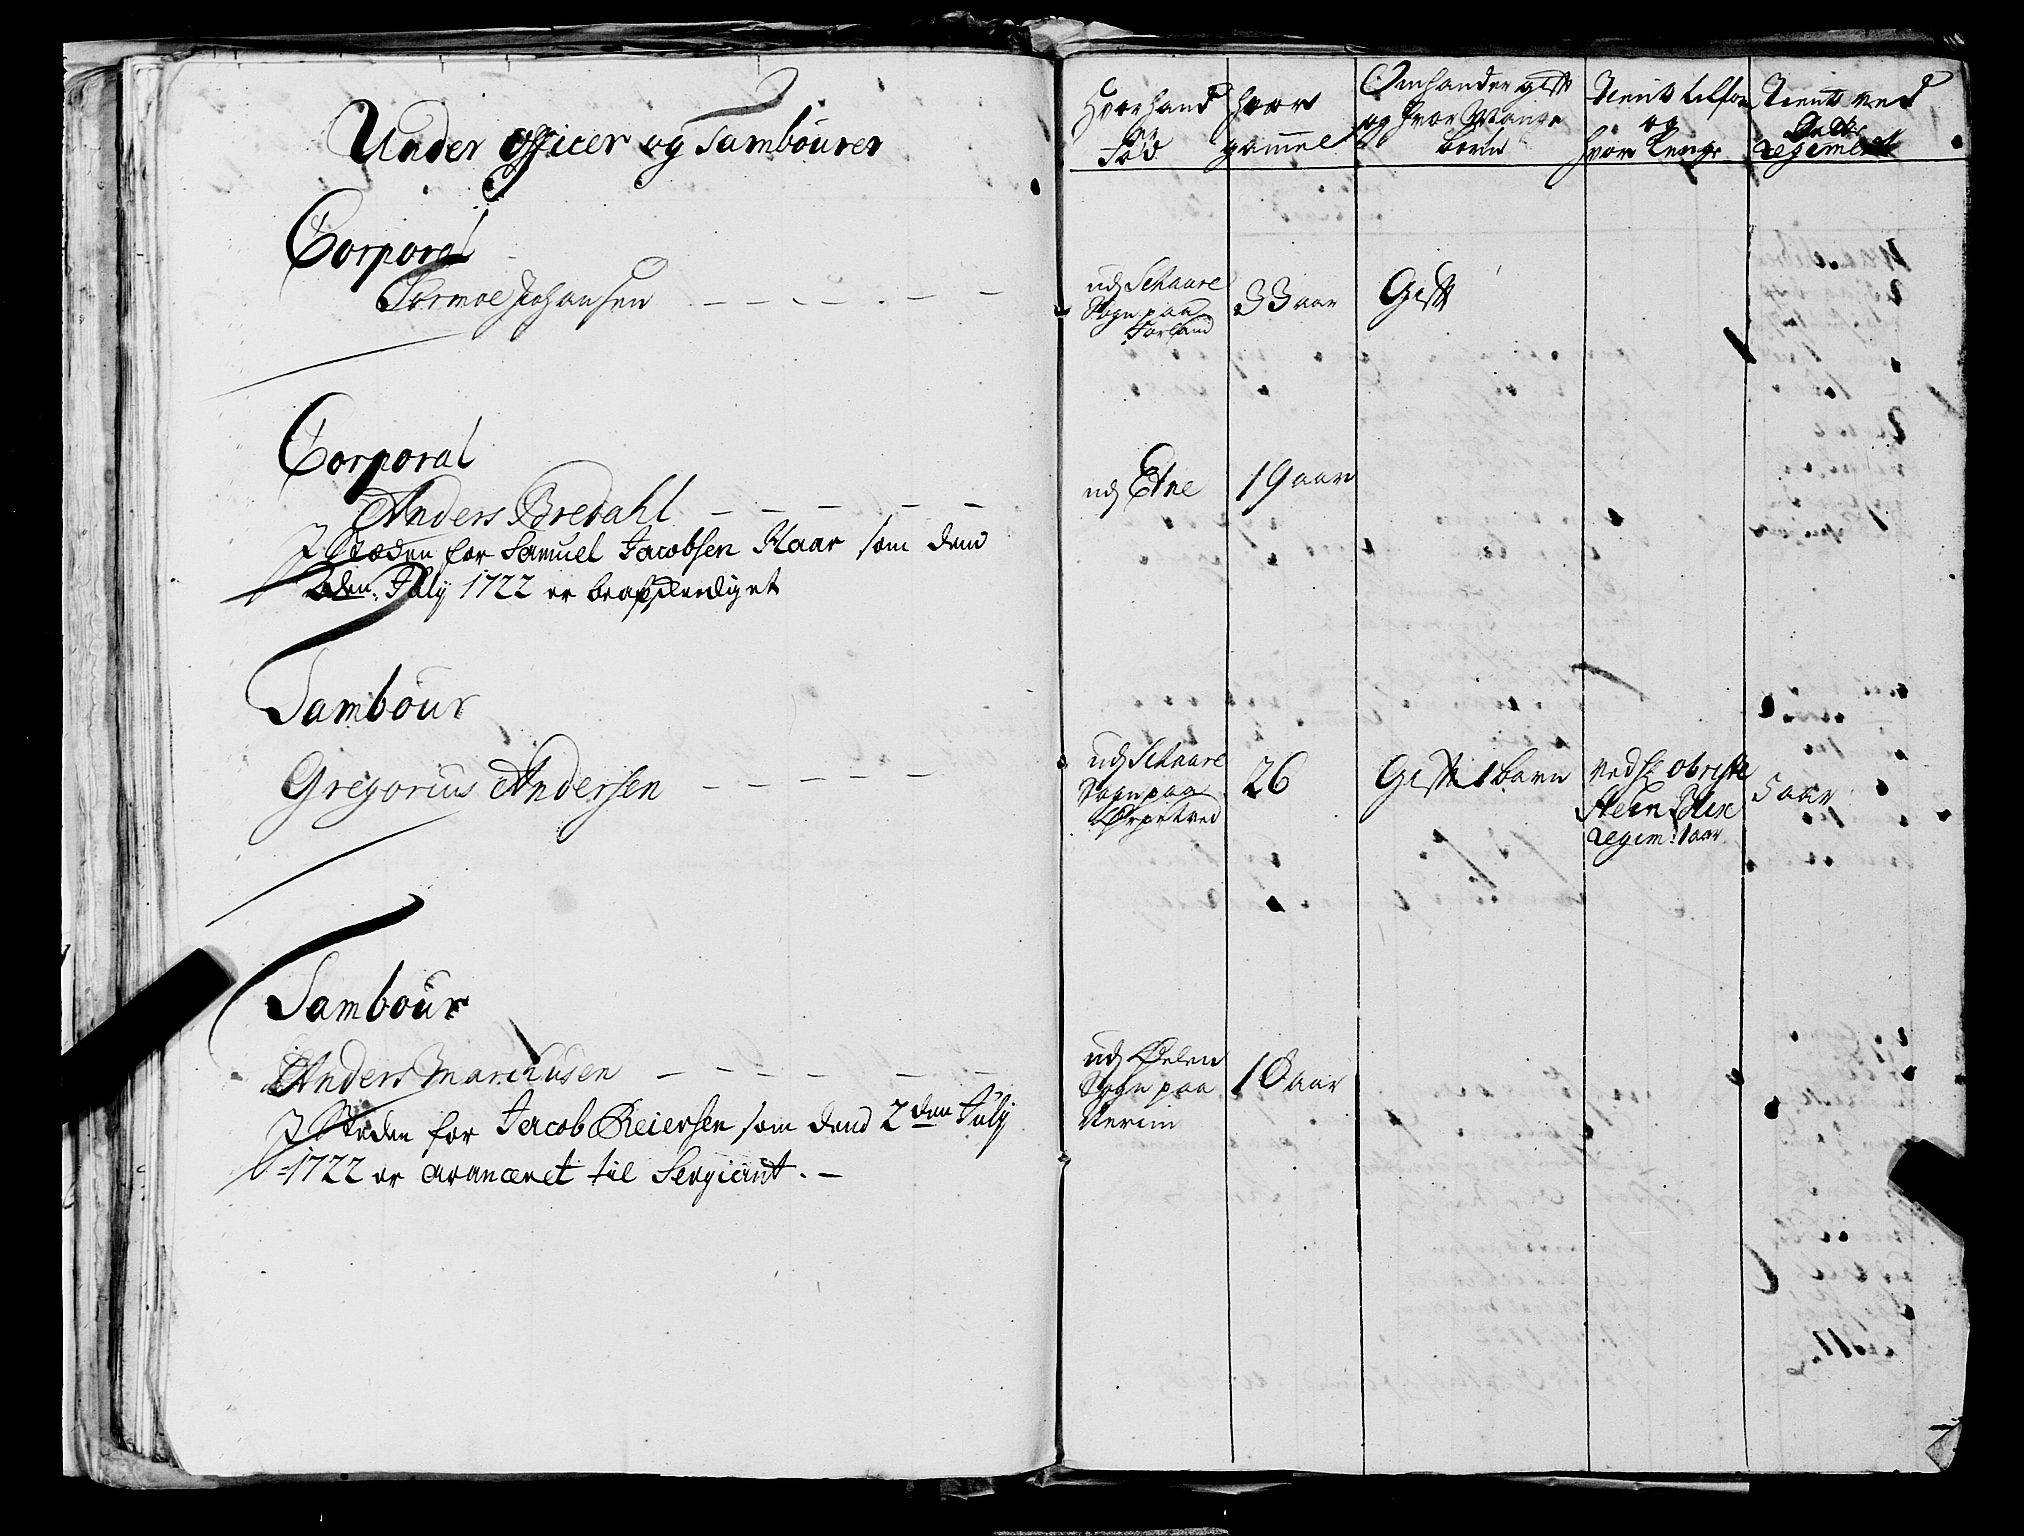 Under officer og Tambourer
Corporal
Tormoe Johansen
Corporal
Anders Bredahl
I Stæden for Samuel Jacobsen Haar som dend
2den July 1722 er beafskeediget
Tambour
Gregorius Andersen
Tambour
Anders Marchusen
I Steden for Jacob Reiersen som dend 2den July
1722 er avanceret til Sergiant.
Hvor hand
Fød
hvor
gammel
Om hand er gift
og hvor Mange
børn
Tient tilforn
og
hvor Lenge
Tient ved
Dette
Regiment
udj Schaare
Sogn paa
Førland
33 aar
Gift
udj Etne
19 aar
udj Schaare
Sogn paa
26
Gift 1 barn
ved Hr Obriste
Regim: 1 aar
5 aar
udj Øelen
Sogn paa
Nerim
10 aar